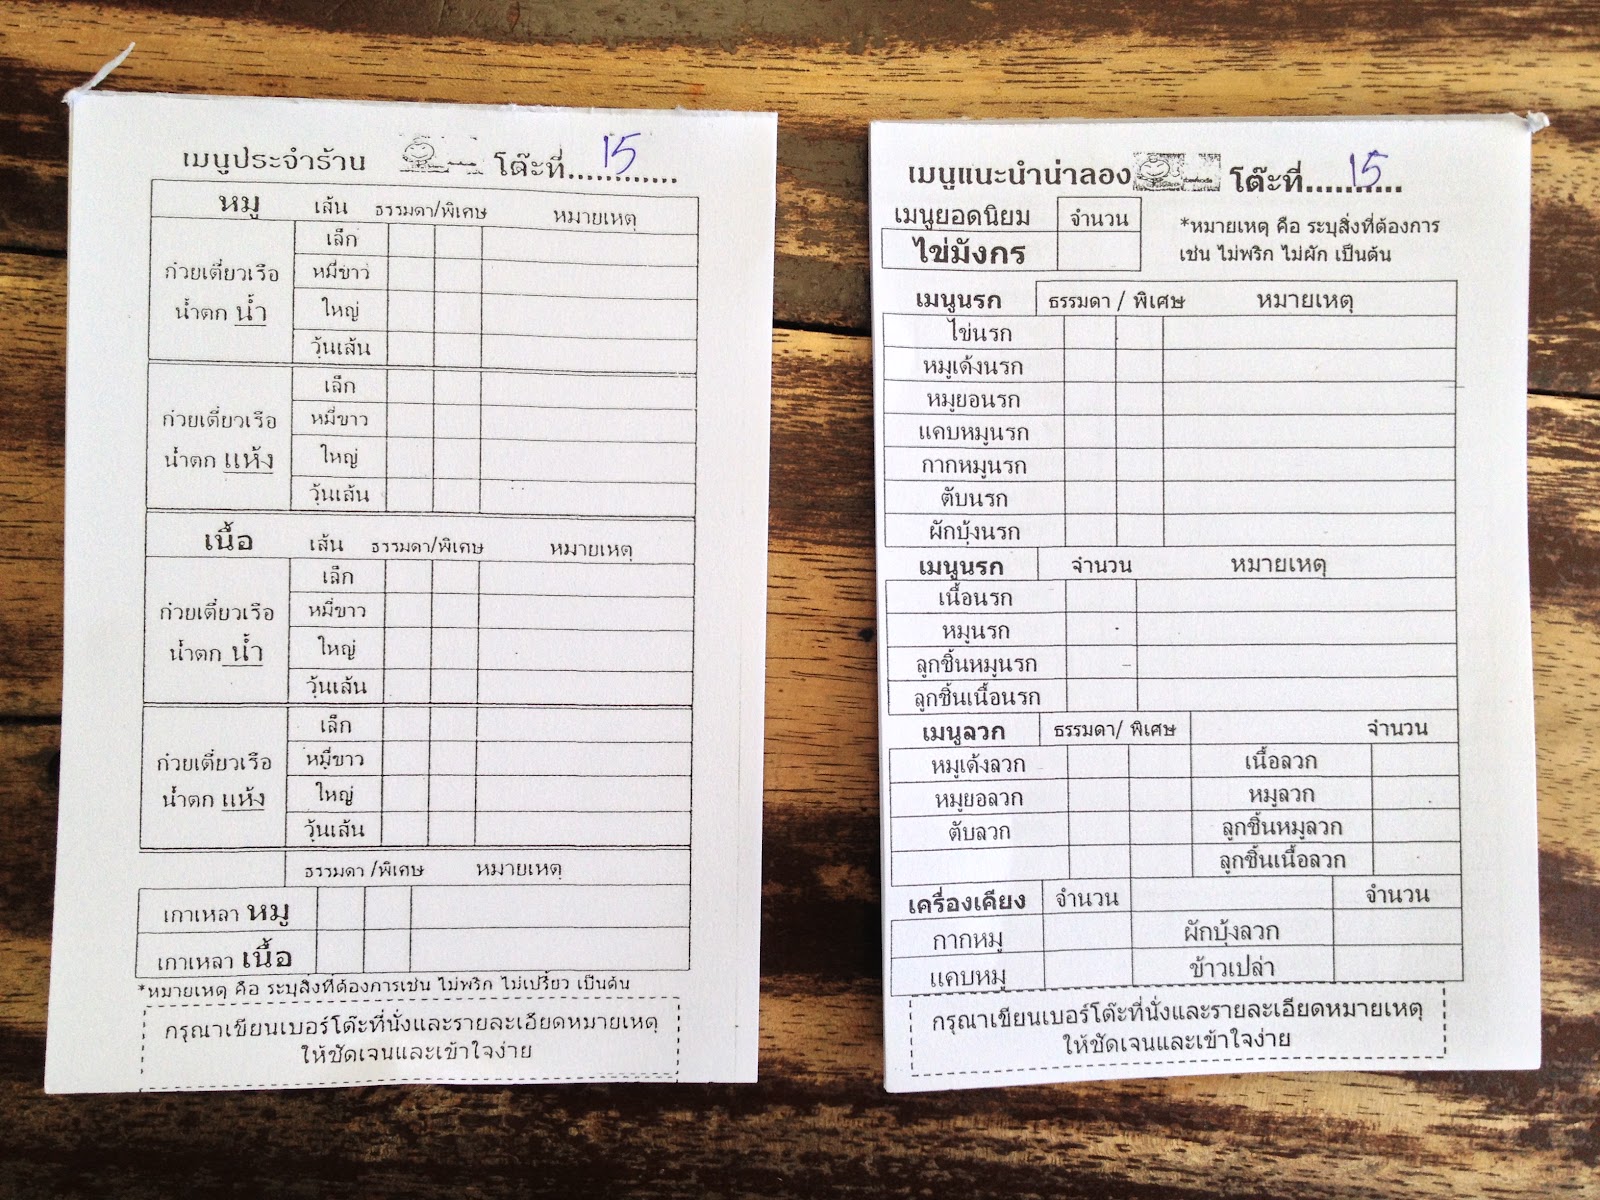 เมนูประจำร้าน โต๊ะที่............ 15
หมู เส้น ธรรมดา/พิเศษ หมายเหตุ
ก๋วยเตี่ยวเรือ
น้ำตก น้ำ
เล็ก
หมี่ขาว
ใหญ่
วุ้นเส้น
ก๋วยเตี่ยวเรือ
น้ำตก แห้ง
เล็ก
หมี่ขาว
ใหญ่
วุ้นเส้น
เนื้อ เส้น ธรรมดา/พิเศษ หมายเหตุ
ก๋วยเตี่ยวเรือ
น้ำตก น้ำ
เล็ก
หมี่ขาว
ใหญ่
วุ้นเส้น
ก๋วยเตี่ยวเรือ
น้ำตก แห้ง
เล็ก
หมี่ขาว
ใหญ่
วุ้นเส้น
ธรรมดา /พิเศษ หมายเหตุ
เกาเหลา หมู
เกาเหลา เนื้อ
*หมายเหตุ คือ ระบุสิ่งที่ต้องการเช่น ไม่พริก ไม่เปรี้ยว เป็นต้น
กรุณาเขียนเบอร์โต๊ะที่นั่งและรายละเอียดหมายเหตุ
ให้ชัดเจนและเข้าใจง่าย
เมนูแนะนำน่าลอง โต๊ะที่........... 15
เมนูยอดนิยม จำนวน
ไข่มังกร
*หมายเหตุ คือ ระบุสิ่งที่ต้องการ
เช่น ไม่พริก ไม่ผัก เป็นต้น
เมนูนรก ธรรมดา / พิเศษ หมายเหตุ
ไข่นรก
หมูเด้งนรก
หมูยอนรก
แคบหมูนรก
กากหมูนรก
ตับนรก
ผักบุ้งนรก
เมนูนรก จำนวน หมายเหตุ
เนื้อนรก
หมูนรก
ลูกชิ้นหมูนรก
ลูกชิ้นเนื้อนรก
เมนูลวก ธรรมดา/ พิเศษ จำนวน
หมูเด้งลวก เนื้อลวก
หมูยอลวก หมูลวก
ตับลวก ลูกชิ้นหมูลวก
ลูกชิ้นเนื้อลวก
เครื่องเคียง จำนวน จำนวน
กากหมู ผักบุ้งลวก
แคบหมู ข้าวเปล่า
กรุณาเขียนเบอร์โต๊ะที่นั่งและรายละเอียดหมายเหตุ
ให้ชัดเจนและเข้าใจง่าย